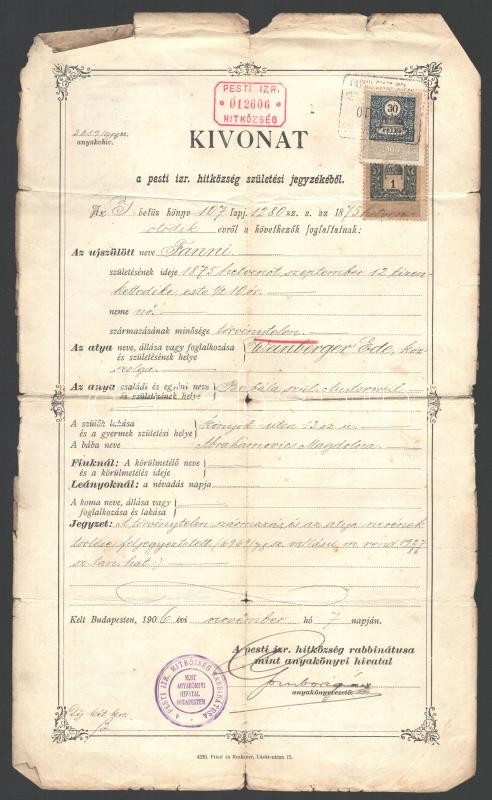 PESTI IZR.
012606
HITKÖZSÉG
30
1
anyakhiv.
KIVONAT
a pesti izr. hitközség születési jegyzékéből.
Az I betüs könyv 107 lapj. 1280 sz. a. az 1875 hetven
ötödik évről a következők foglaltatnak:
Az ujszülött neve Fanni
születésének ideje 1875 hetvenöt szeptember 12 tizen-
kettedike, este ½ 10 ór.
neme nő.
származásának minősége törvénytelen
Az atya neve, állása vagy foglalkozása
és születésének helye
Wanberger Ede, köz-
szolga.
Az anya családi és egyéni neve
és születésének helye
szül.
A szülők lakása
és a gyermek születési helye
utca 13 sz. a.
A bába neve Abrahamovics Magdolna
Fiuknál: A körülmetélő neve
és a körülmetélés ideje
Leányoknál: a névadás napja
A koma neve, állása vagy
foglalkozása és lakása
Jegyzet: A törvénytelen származás és az atya nevének
törlése feljegyeztetett sz. vallásü. m. rend. 1927
sz. tan. hat.)
Kelt Budapesten, 1906 évi november hó 7 napján.
A pesti izr. hitközség rabbinátusa
mint anyakönyvi hivatal
anyakönyvvezető.
A PESTI IZR. HITKÖZSÉG RABBINÁTUSA
MINT
ANYAKÖNYVI
HIVATAL
BUDAPESTEN
Díj két kor.
4220. Fried és Krakauer, Lázár-utcza 15.